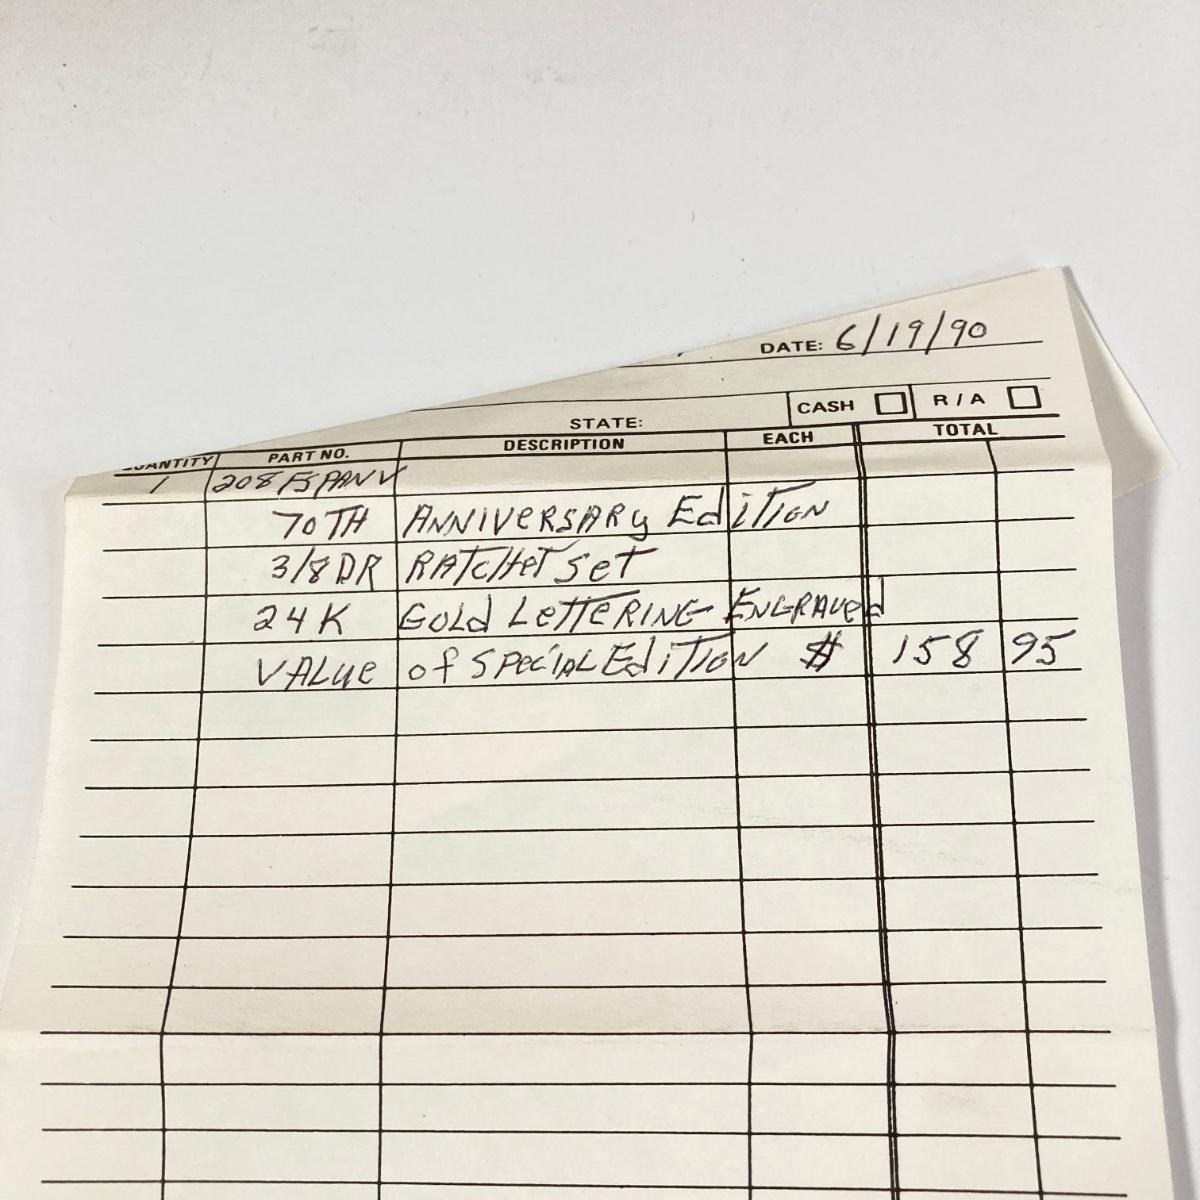 DATE: 6/19/90
STATE: CASH R/A
QUANTITY PART NO. DESCRIPTION EACH TOTAL
1 208FSPANV
70TH ANNIVERSARy EdiTION
3/8DR RATCHET SET
24K GOLd LeTTeRING ENGRAVed
VALUe of SPeCIAL EdiTION $ 158 95